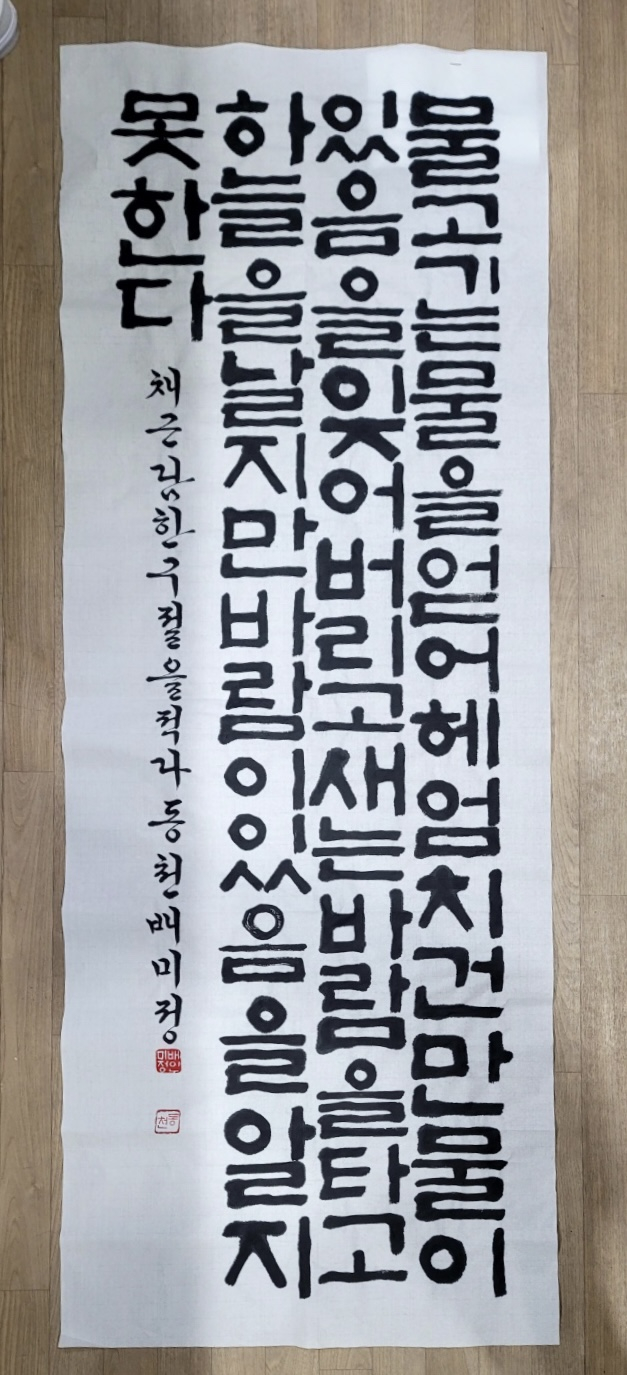 물고기는물을얻어헤엄치건만물이
있음을잊어버리고새는바람을타고
하늘을날지만바람이있음을알지
못한다
채근담한구절을적다동천배미정
배미정인
동천